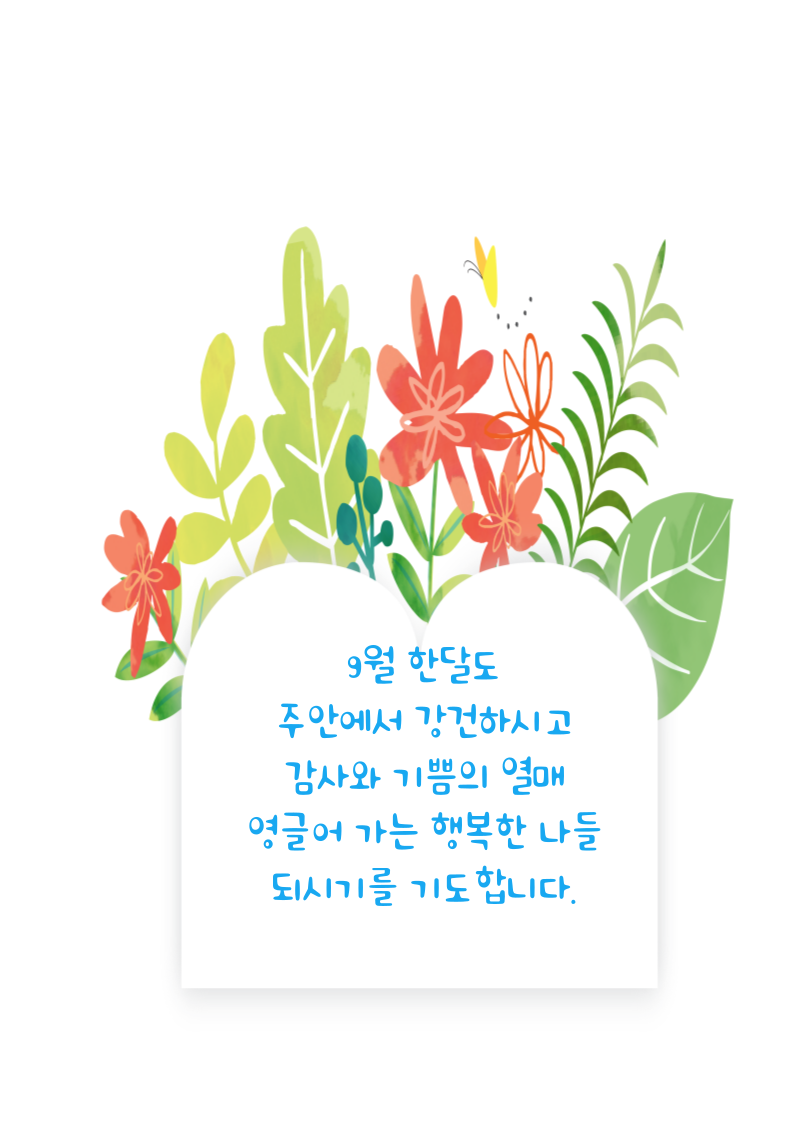 9월 한달도
주안에서 강건하시고
감사와 기쁨의 열매
영글어 가는 행복한 나들
되시기를 기도합니다.